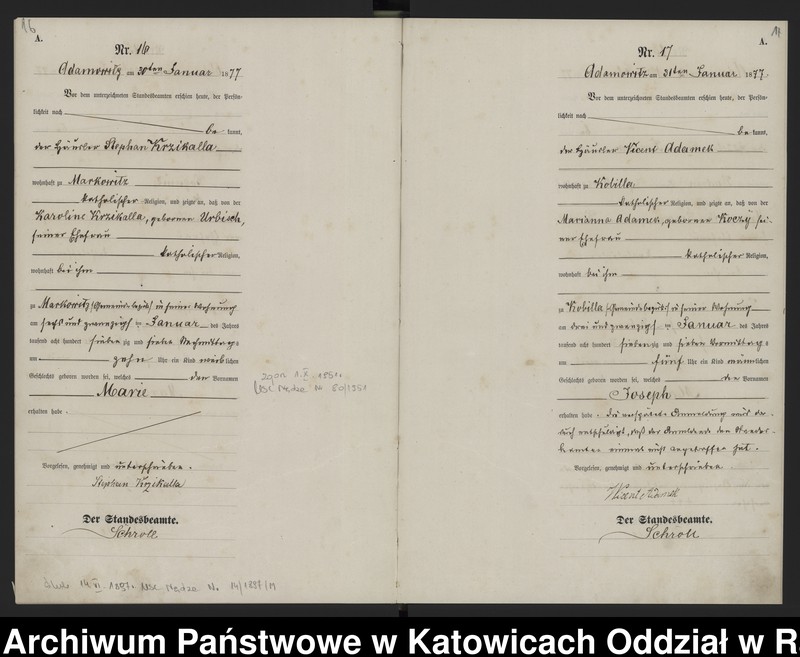 16
A.
Nr. 16
Adamowitz am 30ten Januar 1877
Vor dem unterzeichneten Standesbeamten erschien heute, der Persön-
lichkeit nach
be kannt,
der Häusler Stephan Krzikalla
wohnhaft zu Markowitz
katholischer Religion, und zeigte an, daß von der
Karoline Krzikalla, geborenen Urbisch,
seiner Ehefrau
katholischer Religion,
wohnhaft bei ihm
zu Markowitz (Gemeindebezirk) in seiner Wohnung
am sechs und zwanzigsten Januar des Jahres
tausend acht hundert siebenzig und sieben Nachmittags
um zehn Uhr ein Kind weiblichen
Geschlechts geboren worden sei, welches den Vornamen
Marie
erhalten habe.
Vorgelesen, genehmigt und unterschrieben.
Stephan Krzikalla
Der Standesbeamte.
Schroll
zgon 1.X 1951r.
USC Nędza Nr 50/1951
14 VI 1897r. USC Nędza Nr. 14/1897/M
A.
Nr. 17
Adamowitz am 31ten Januar 1877.
Vor dem unterzeichneten Standesbeamten erschien heute, der Persön-
lichkeit nach
be kannt,
der Häusler Vicent Adamek
wohnhaft zu Kobilla
katholischer Religion, und zeigte an, daß von der
Marianna Adamek, geborenen Koczy sei-
ner Ehefrau
katholischer Religion,
wohnhaft bei ihm
zu Kobilla (Gemeindebezirk) in seiner Wohnung
am drei und zwanzigsten Januar des Jahres
tausend acht hundert siebenzig und sieben Vormittags
um fünf Uhr ein Kind männlichen
Geschlechts geboren worden sei, welches den Vornamen
Joseph
erhalten habe. Die verspätete Anmeldung wird da-
durch entschuldigt, daß der Anmeldende den Standes-
beamten einmal nicht angetroffen hat.
Vorgelesen, genehmigt und unterschrieben
Vicent Adamek
Der Standesbeamte.
Schroll
Archiwum Państwowe w Katowicach Oddział w R